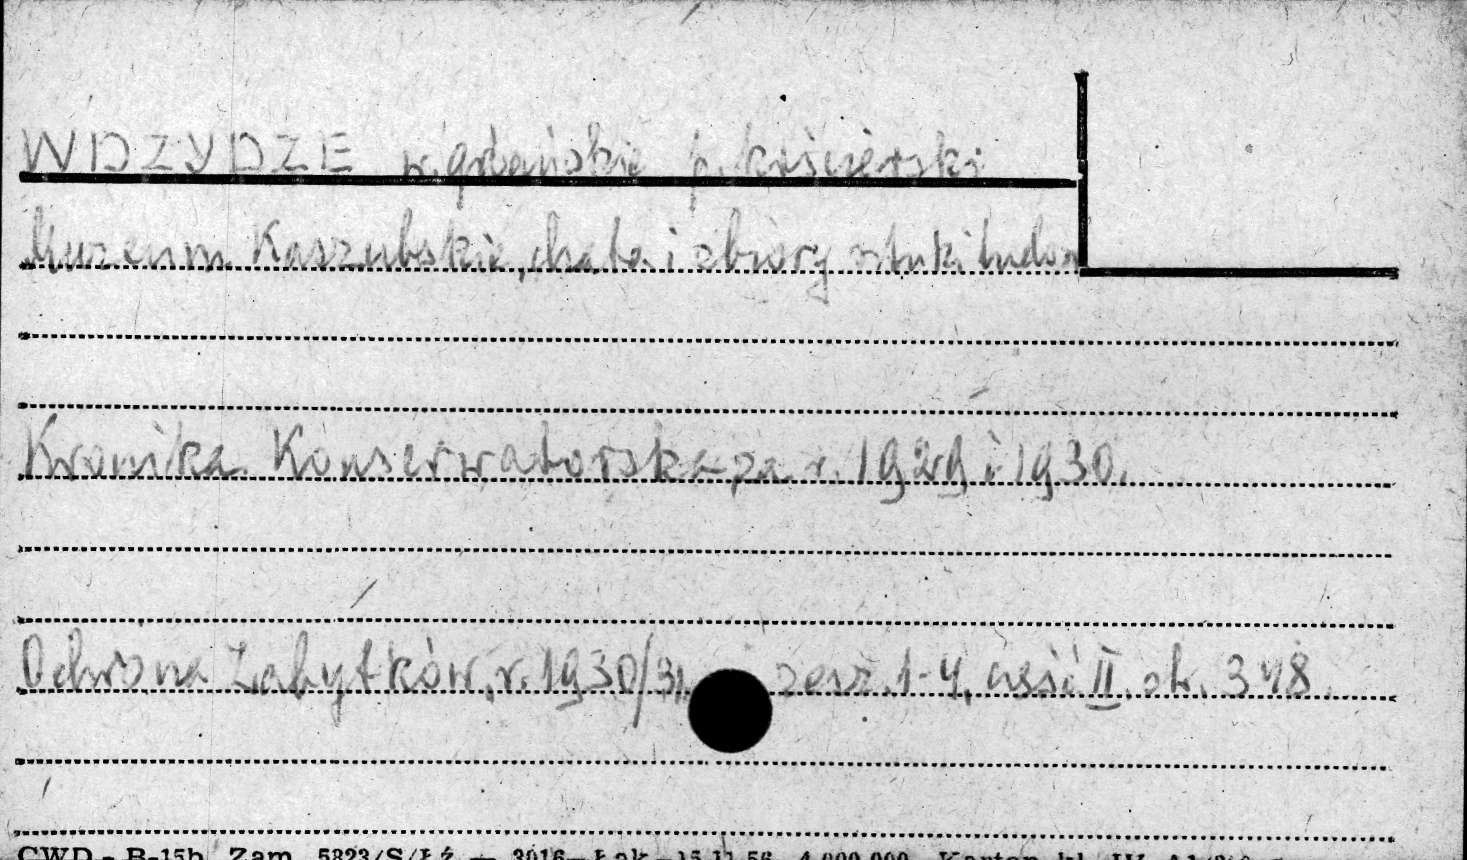 WDZYDZE w. gdańskie p. kościerski
Muzeum Kaszubskie, chata i zbiory sztuki ludow
Kronika Konserwatorska za r. 1929 i 1930.
Ochrona Zabytków, r. 1930/31, zesz. 1-4, część II, str. 348.
CWD - B-15b Zam. 5823/S/ŁŹ — 3016 — Łąk — 15.11.56 4.000.000 Karton kl. IV A1